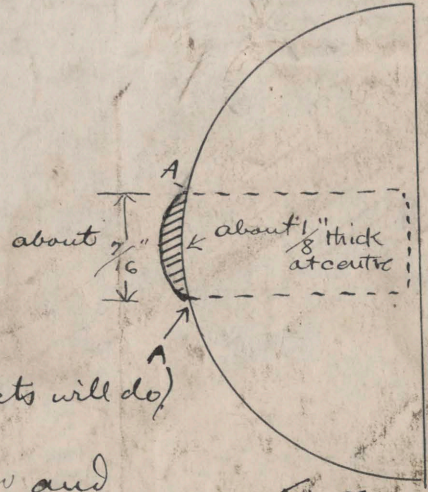 A
about 7/16"
about 1/8" thick
at centre
A
cts will do)
and